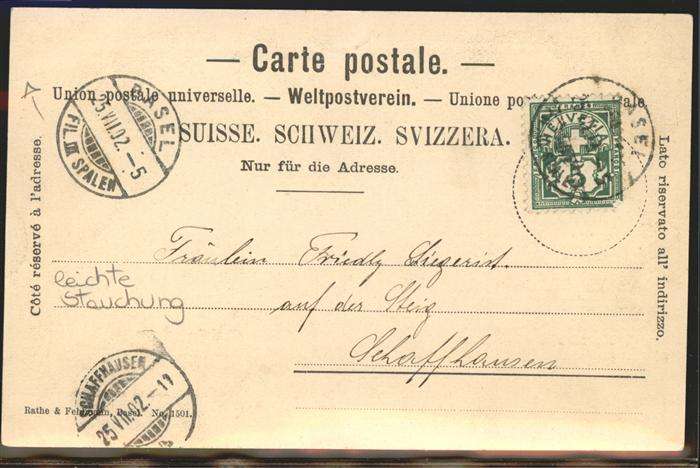 — Carte postale. —
Union postale universelle. — Weltpostverein. — Unione postale
SUISSE. SCHWEIZ. SVIZZERA.
Nur für die Adresse.
Côté réservé à l'adresse.
Lato riservato all' indirizzo.
BASEL
25.VII.02.-5
FIL. III SPALEN
BASEL
5
Fräulein Friedly Siegerist.
auf der Steig
Schaffhausen
leichte
Stauchung
SCHAFFHAUSEN
25.VII.02.-11
Rathe & Fehlmann, Basel. No. 1501.